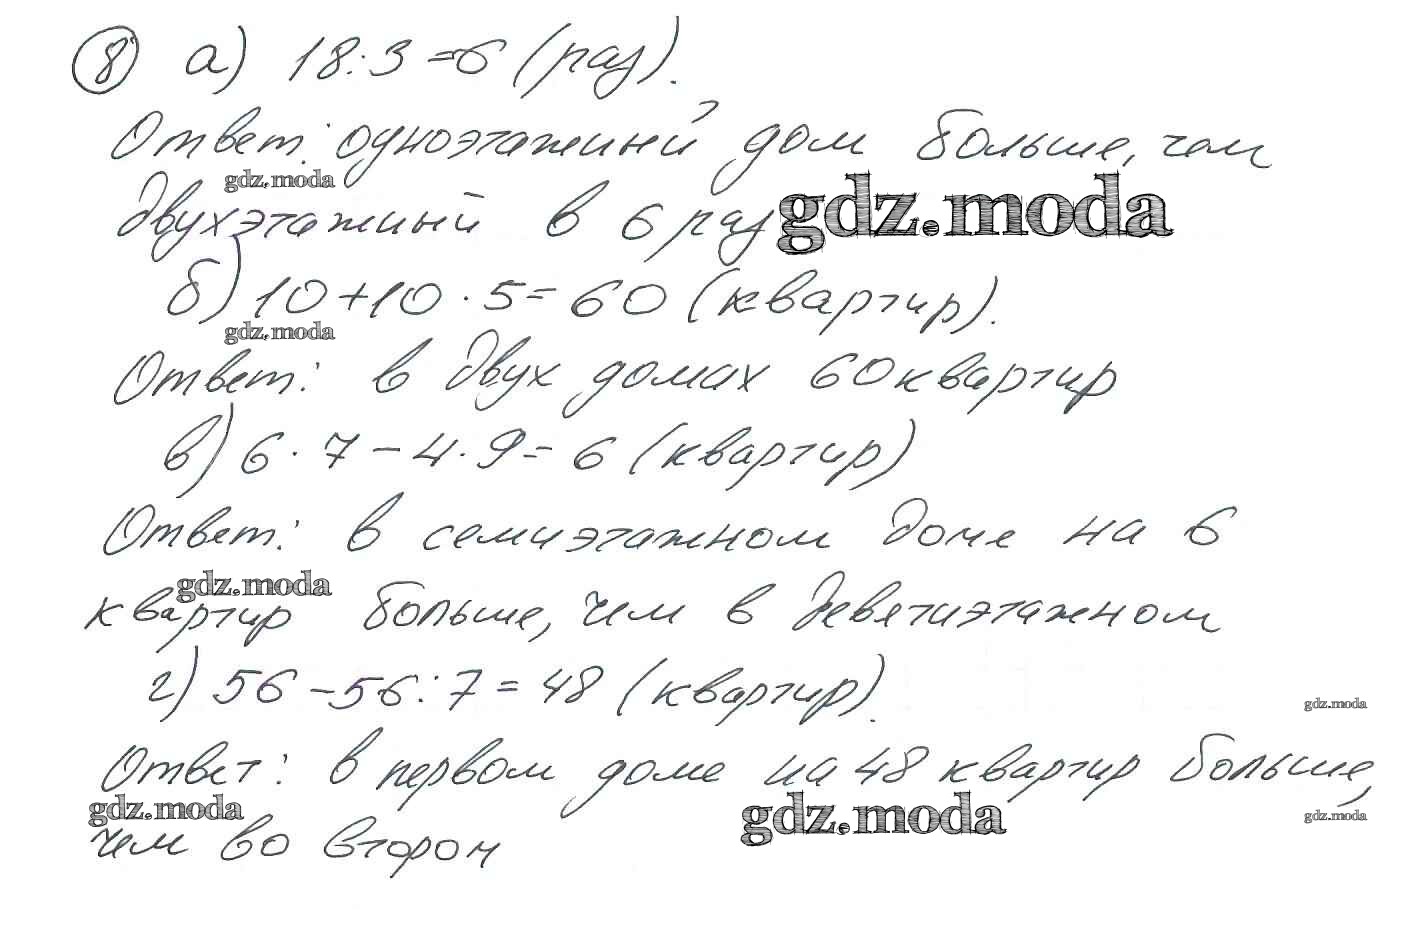 8 а) 18:3=6 (раз).
Ответ: одноэтажный дом больше, чем
gdz.moda
двухэтажный в 6 раз
gdz.moda
б) 10+10·5=60 (квартир).
gdz.moda
Ответ: в двух домах 60 квартир
в) 6·7-4·9=6 (квартир)
Ответ: в семиэтажном доме на 6
gdz.moda
квартир больше, чем в девятиэтажном
г) 56-56:7=48 (квартир).
gdz.moda
Ответ: в первом доме на 48 квартир больше,
gdz.moda
gdz.moda
gdz.moda
чем во втором